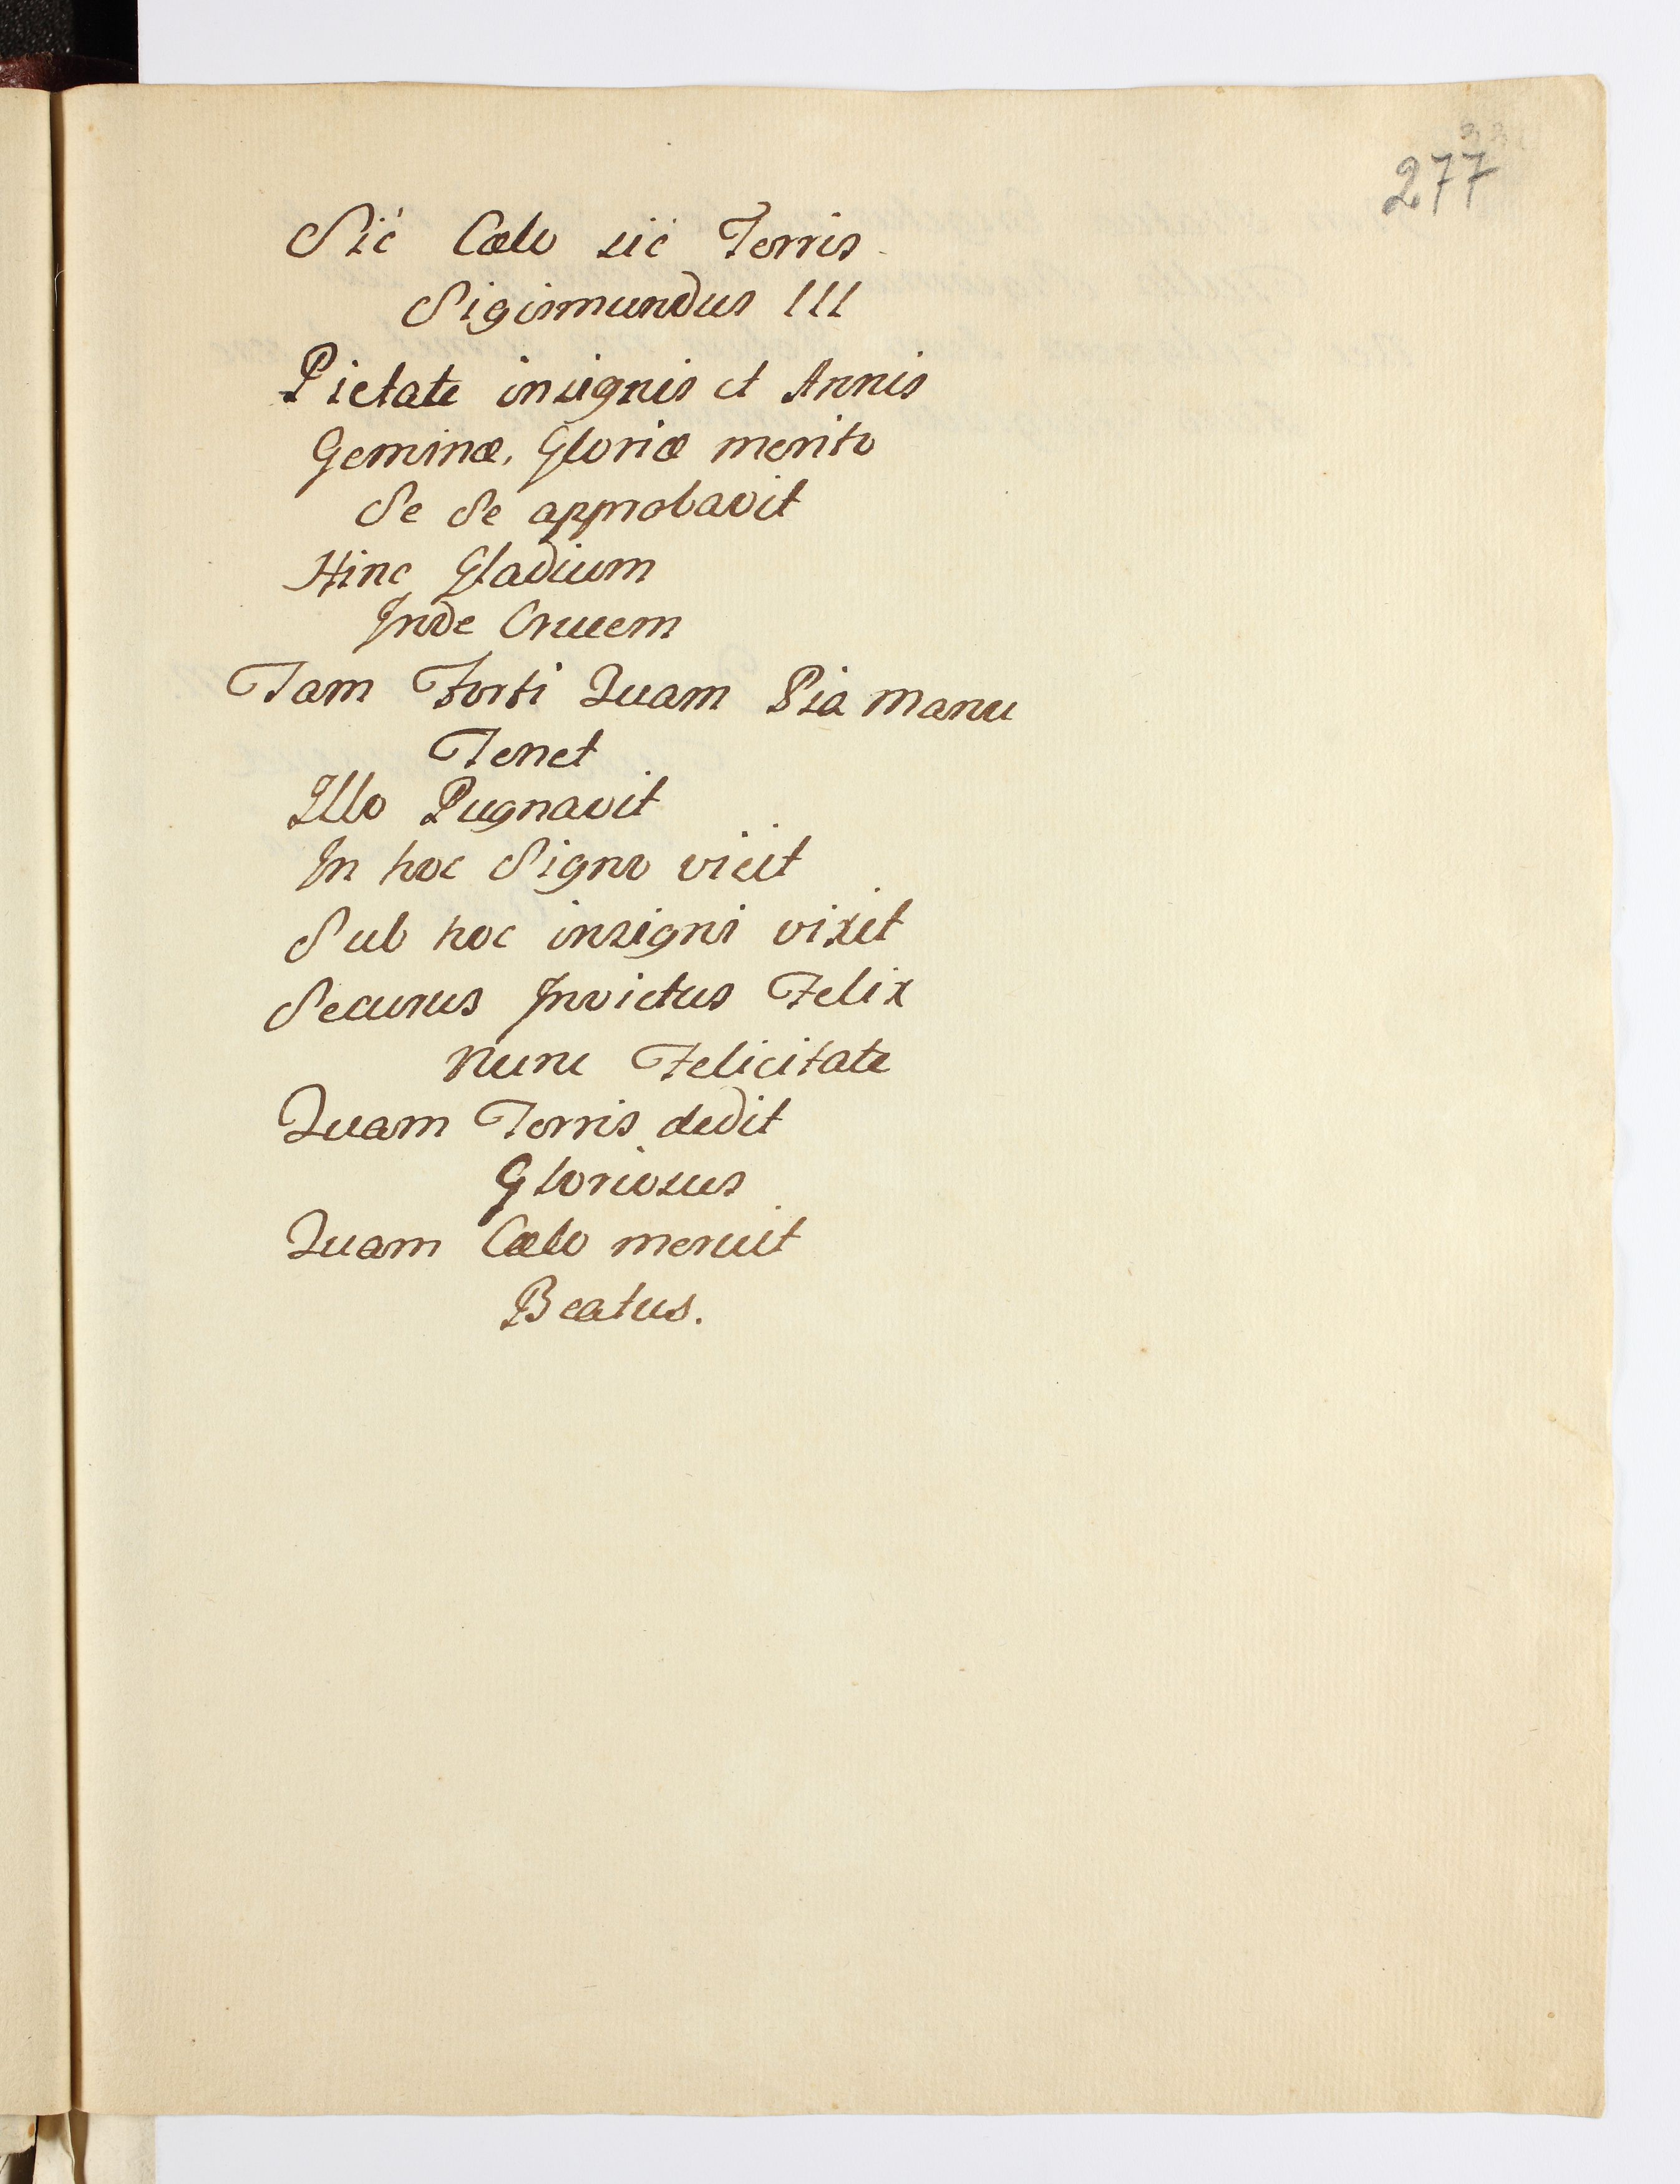 277
Sic Cælo sic Terris
Sigismundus III
Pietate insignis et Annis
Geminæ, Gloriæ merito
Se Se approbavit
Hinc Gladium
Inde Crucem
Tam Forti Quam Pia Manu
Tenet
Illo Pugnavit
In hoc Signo vicit
Sub hoc insigni vixit
Securus Invictus Felix
Nunc Felicitate
Quam Terris dedit
Gloriosus
Quam Cælo meruit
Beatus.